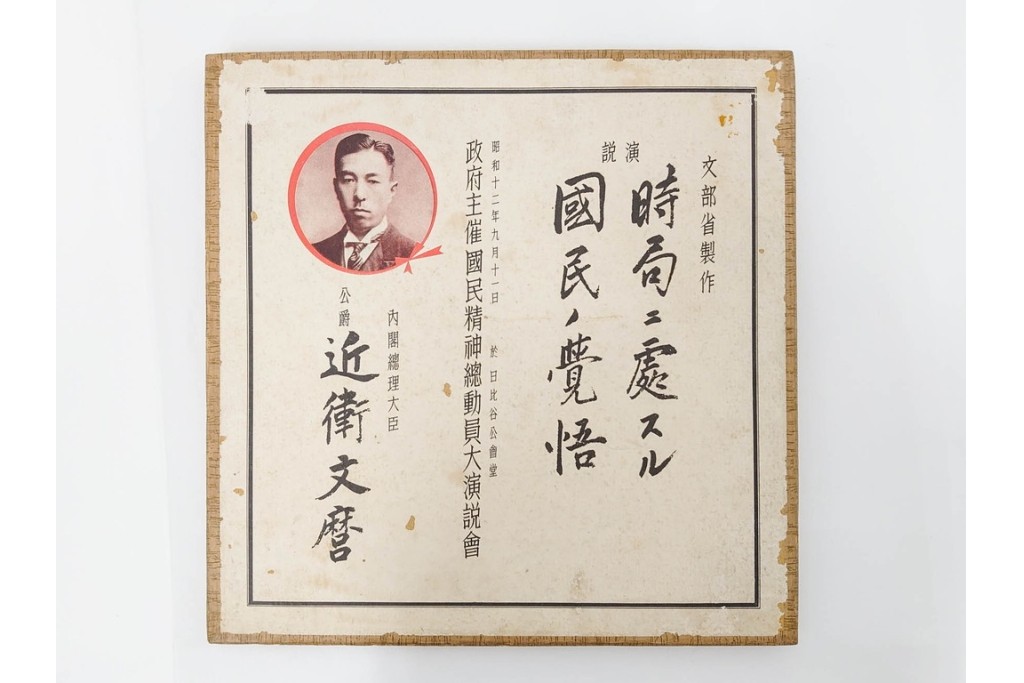 文部省製作
演説
時局ニ處スル
國民ノ覺悟
昭和十二年九月十一日 於 日比谷公會堂
政府主催國民精神總動員大演説會
内閣總理大臣
公爵 近衞文麿